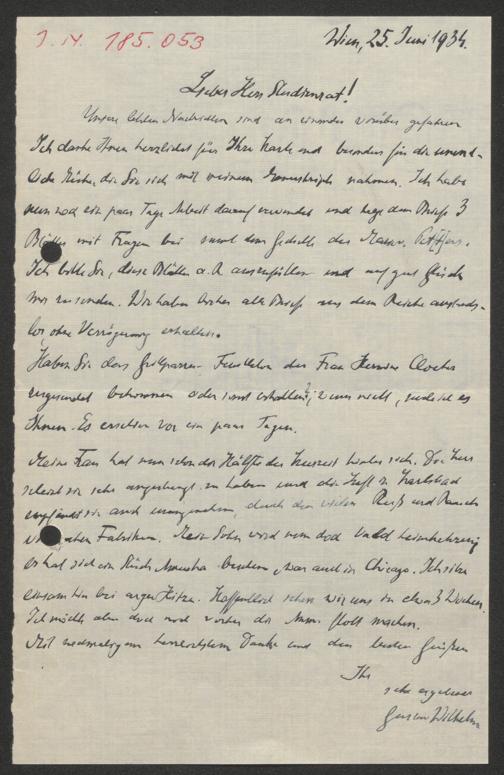 J. N. 185.053
Wien, 25. Juni 1934.
Lieber Herr Studienrat!
Unsere letzten Nachrichten sind an einander vorüber gefahren
Ich danke Ihnen herzlichst für Ihre Karte und besonders für die unend-
liche Mühe, die Sie sich mit meinem Manuskripte nahmen. Ich habe
nun noch ein paar Tage Arbeit darauf verwendet und lege dem Briefe 3
Blätter mit Fragen bei samt dem Gedicht des
Ich bitte Sie, diese Blätter auszufüllen und mir zusenden. Wir haben bisher alle Briefe aus dem Reiche anstands-
los, ohne Verzögerung erhalten.
Haben Sie das Grillparzer-Feuilleton der Frau Hermine Cloeter
zugesendet bekommen oder sonst erhalten? Wenn nicht, sende ich es
Ihnen. Es erschien vor ein paar Tagen.
Meine Frau hat nun schon die Hälfte der Kurzeit hinter sich. Die Kur
scheint sie sehr angestrengt zu haben und die Luft in Karlsbad
empfindet sie auch unangenehm, durch den vielen Ruß und Rauch
Fabriken. Mein Sohn wird nun doch bald heimkehren;
er hat sich ein Stück Amerika besehen, war auch in Chicago. Ich sitze
einsam hier bei arger Hitze. Hoffentlich sehen wir uns in etwa 3 Wochen.
Ich möchte aber doch noch vorher das Manuskr. flott machen.
Mit nochmaligem herzlichstem Danke und den besten Grüßen
Ihr
sehr ergebener
Gustav Wilhelm